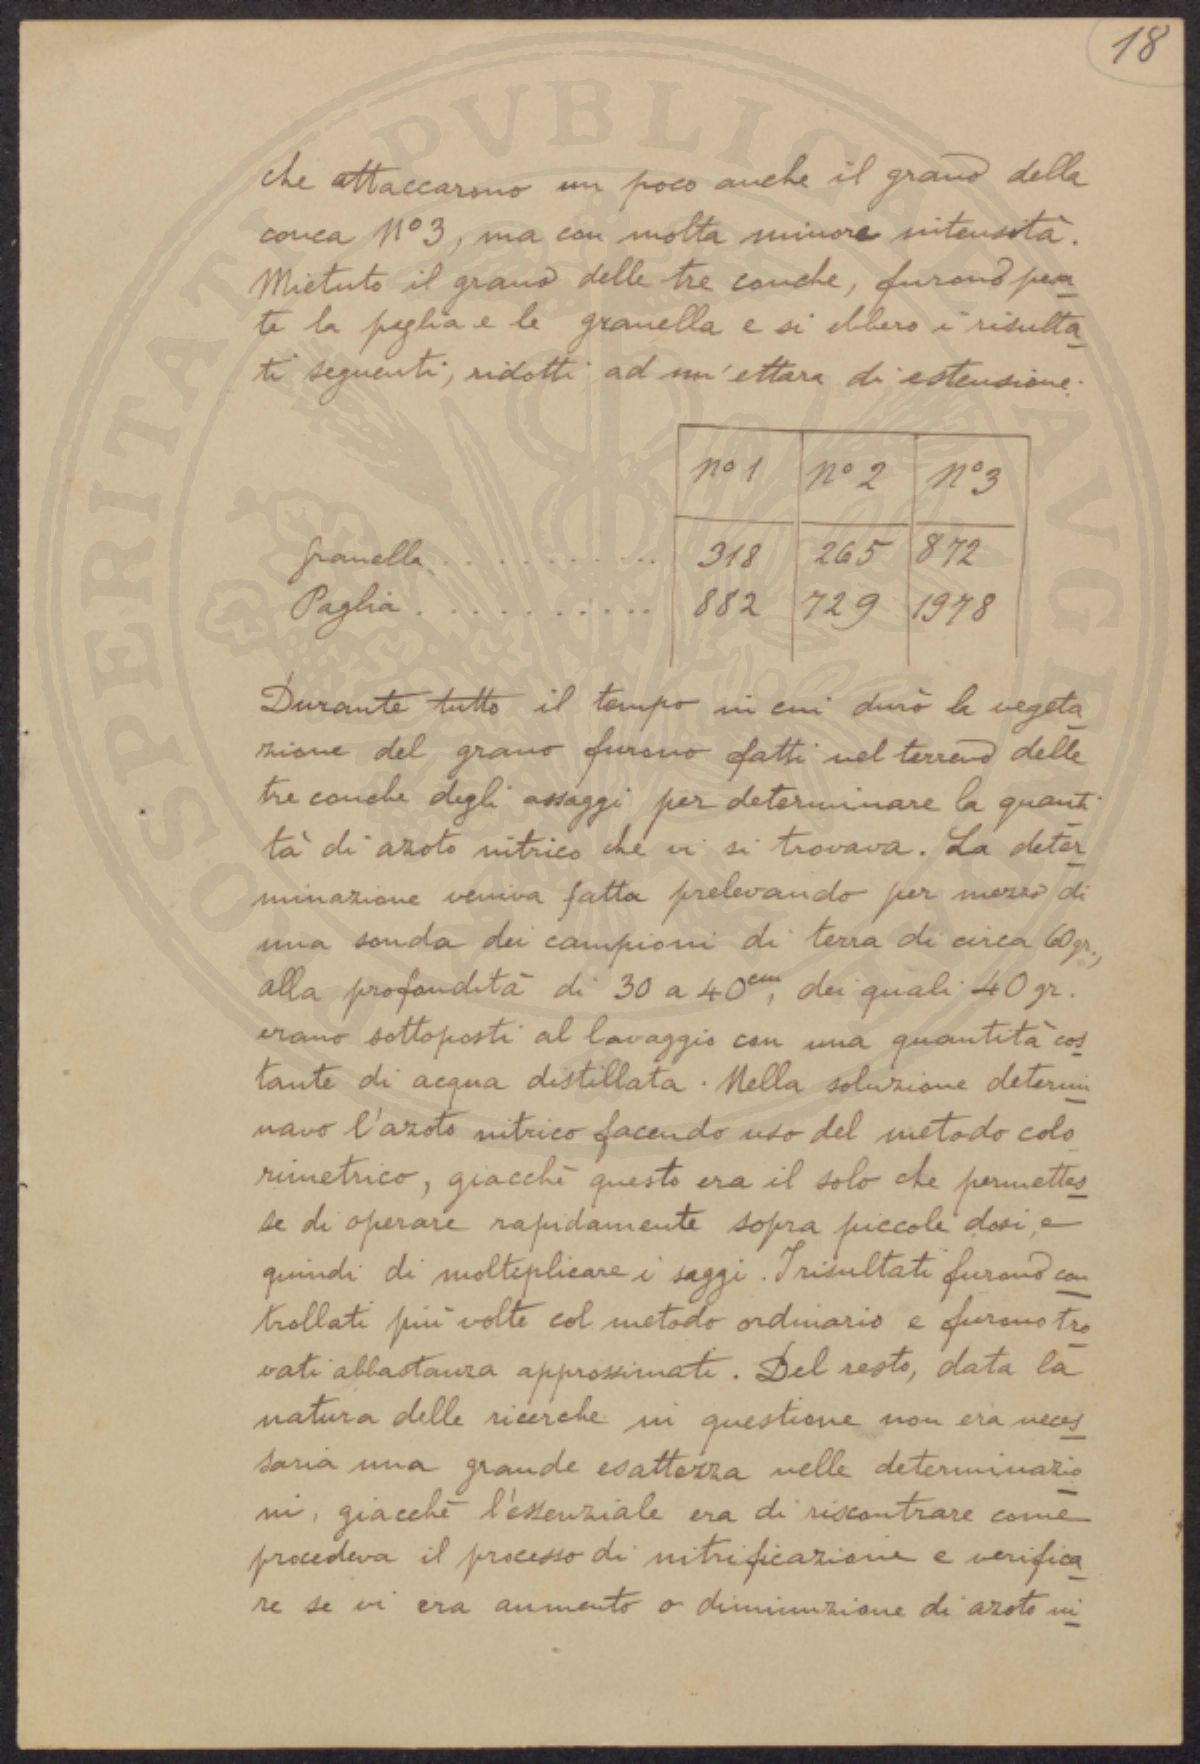 18
che attaccarono un poco anche il grano della
conca Nº3, ma con molta minore intensità.
Mietuto il grano delle tre conche, furono pesa
te la paglia e le granella e si ebbero i risulta
ti seguenti, ridotti ad un'ettara di estensione.
nº 1 nº 2 nº 3
Granella 318 265 872
Paglia 882 729 1978
Durante tutto il tempo in cui durò la vegeta
zione del grano furono fatti nel terreno delle
tre conche degli assaggi per determinare la quanti
tà di azoto nitrico che vi si trovava. La deter
minazione veniva fatta prelevando per mezzo di
una sonda dei campioni di terra di circa 60 gr.,
alla profondità di 30 a 40cm, dei quali 40 gr.
erano sottoposti al lavaggio con una quantità cos
tante di acqua distillata. Nella soluzione determi
navo l'azoto nitrico facendo uso del metodo colo
rimetrico, giacchè questo era il solo che permettes
se di operare rapidamente sopra piccole dosi, e
quindi di moltiplicare i saggi. I risultati furono con
trollati più volte col metodo ordinario e furono tro
vati abbastanza approssimati. Del resto, data la
natura delle ricerche in questione non era neces
saria una grande esattezza nelle determinazio
ni, giacchè l'essenziale era di riscontrare come
procedeva il processo di nitrificazione e verifica
re se vi era aumento o diminuzione di azoto ni